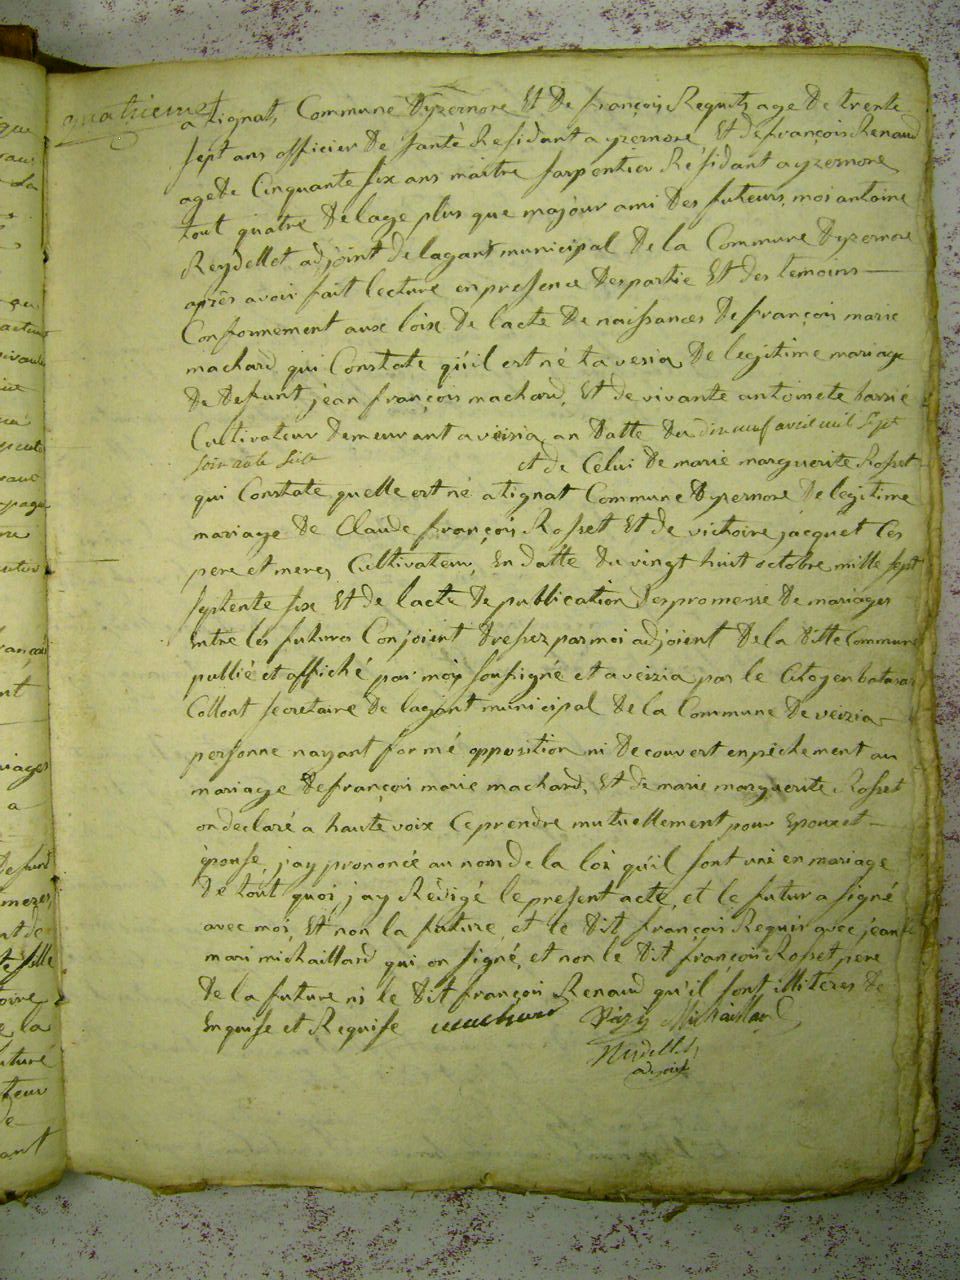 quatrieme f
a tignat, Commune Dyzernore Et De françois Requit, age De trente
sept ans officier De santé Residant a yzernore Et De françois Renaud
age De Cinquante six ans maitre sarpentier Résidant a yzernore
tout quatre De lage plus que majour ami Des futeurs, moi antoine
Reydellet adjoint De lagant municipal De la Commune Dyzernore
après avoir fait lecture en presence Des partie Et Des temoins
Conformement aux loix De lacte De naissances De françois marie
machard qui Constate qu'il est né a De legitime mariage
De Defunt jean françois machard, Et De vivante antoinete barrié
Cultivateur Demeurant a veizia, an Datte Du dix neuf avril mil sept
soixante
et de Celui De marie marguerite Rosset
qui Constate quelle est né a tignat Commune Dyzernore De legitime
mariage De Claude françois Rosset Et De victoire jacquet Ces
pere et mere, Cultivateur, En Datte Du vingt huit octobre mille sept
septente six Et De lacte De publication Des promesse De mariages
Entre les futures Conjoient Dressez par moi adjoient De la Ditte Commune
publié et affiché par moy soussigné et a veizia par le Citoyen
Collont secretaire De lagant municipal De la Commune De veizia
personne nayant formé opposition ni Decouvert enpêchement au
mariage De françois marie machard, Et De marie marguerite Rosset
on declaré a haute voix Ce prendre mutuellement pour Epoux et
épouse j'ay prononcée au nom De la loi qu'il sont uni en mariage
De tout quoi j'ay Redigé le present acte, et le futur a signé
avec moi, Et non la future, et le Dit françois Requit avec jean
mari michaillard qui on signé, et non le Dit françois Rosset pere
De la future ni le Dit françois Renaud qu'il sont illiteres De
Enquise et Requise machard Michaillard
Reydellet
adjoint